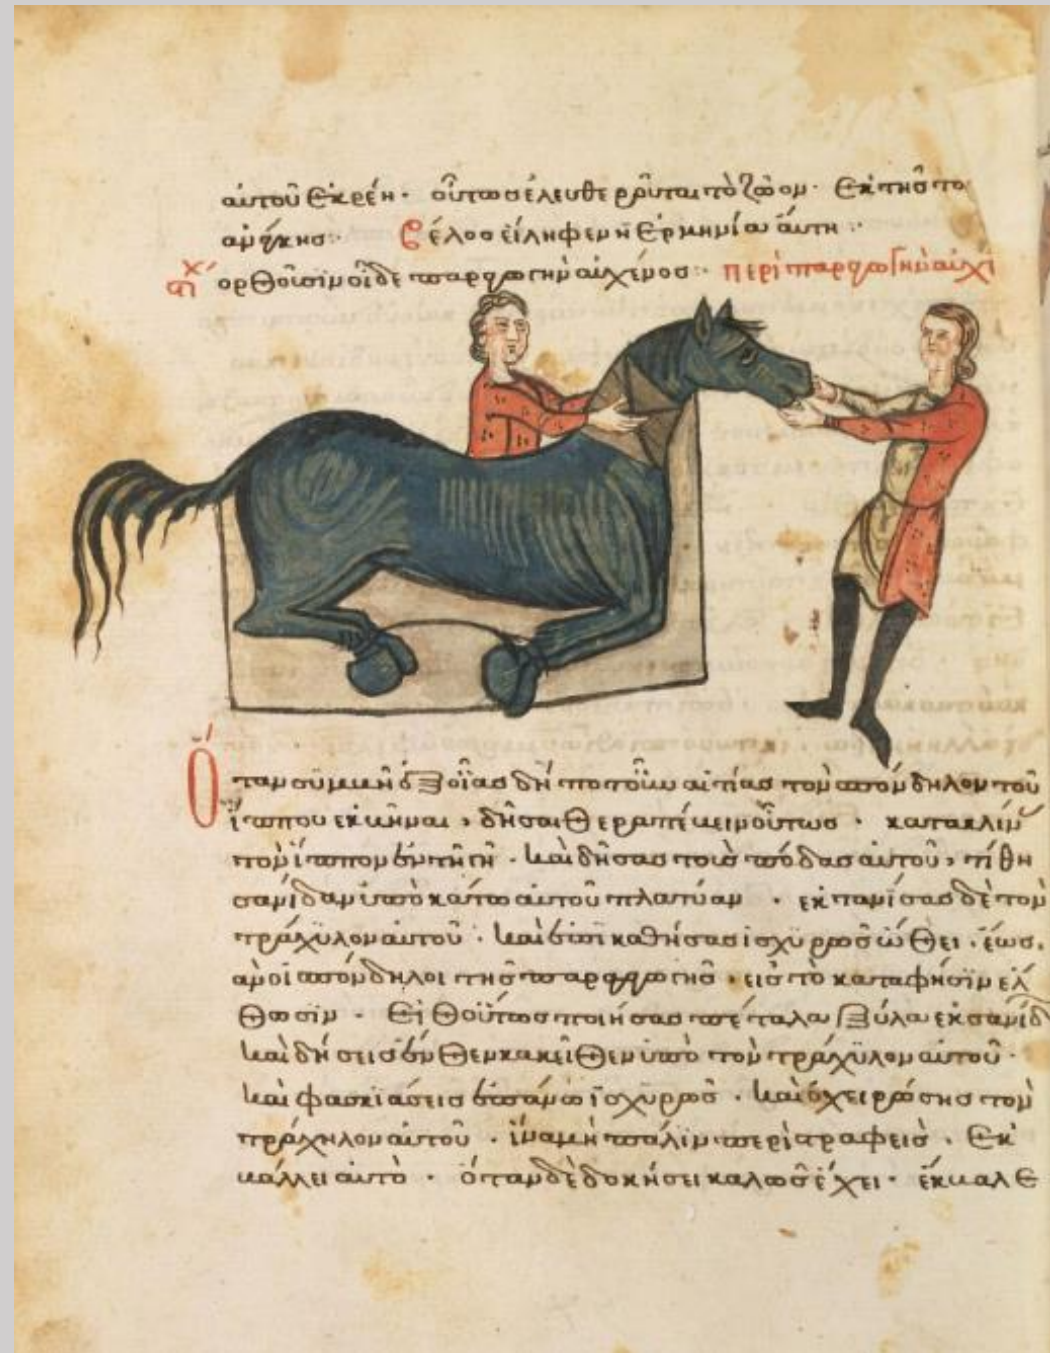 αὐτοῦ ἐκρέη · οὕτωσ ἐλευθεροῦται τὸ ζῶον · ἐκ τῆσ το
ανάγκησ ·: βέλοσ εἴληφεν ἡ ἑρμηνία αὕτη ·:
ὀρθοῖσιν οἵδε παραγωγὴν αὐχένοσ ·: περὶ παραγωγὴν αὐχέ
Ὅταν συμβῆ ἐξ οἵασ δή ποτ' οὖν αἰτίασ τὸν σπόνδηλον τοῦ
ἵππου ἐκβῆναι, δῆσαι θεραπεύειν οὕτωσ · κατακλίν
τὸν ἵππον ἐν τῆ γῆ · καὶ δήσασ τοὺσ πόδασ αὐτοῦ, τίθη
σανίδαν ὑπὸ κάτω αὐτοῦ πλατύαν · ἐκτανίσασ δὲ τὸν
τράχυλον αὐτοῦ · καὶ ἐπικαθήσασ ἰσχυρρῶσ ὤθει · ἕωσ
ἀν οἱ σπόνδηλοι τῆσ παραγωγῆσ, εἰσ τὸ κατὰ φήσϊν ἐλ
θωσϊν · εἶθ οὕτωσ ποιήσασ πέταλα ξύλα ἐκ σανίδ
καὶ δήσεισ ἔνθεν κακεῖθεν ὑπὸ τὸν τράχυλον αὐτοῦ ·
καὶ φασκϊάσεισ ἐπάνω ἰσχυρρῶσ · καὶ ὀχειρώσησ τὸν
τράχηλον αὐτοῦ · ἵνα μὴ πάλιν περιστραφεὶσ · ἐκ
βάλλει αὐτὸ · ὅταν δὲ δοκήσει καλῶσ ἔχει · ἔκβαλε